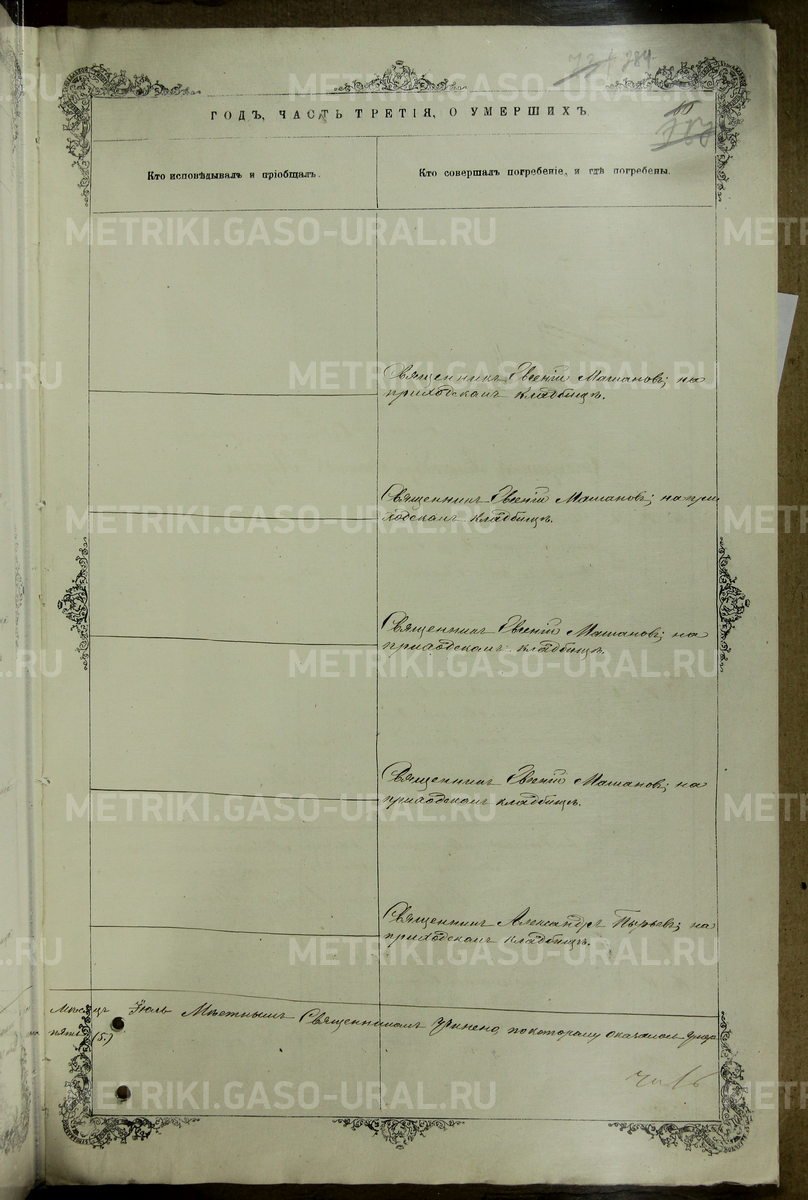 384
ГОДЪ, ЧАСТЬ ТРЕТІЯ, О УМЕРШИХЪ
Кто исповѣдывалъ и пріобщалъ.
Кто совершалъ погребеніе, и гдѣ погребены.
Священникъ Евгеній Машановъ; на
приходскомъ кладбищѣ.
Священникъ Евгеній Машановъ; на при
ходскомъ кладбищѣ.
Священникъ Евгеній Машановъ; на
приходскомъ кладбищѣ.
Священникъ Евгеній Машановъ; на
приходскомъ кладбищѣ.
Священникъ Александръ Пырьевъ; на
приходскомъ кладбищѣ.
Мѣсяцъ Іюль Мѣстнымъ Священникомъ учинено, по которому оказалось
пять (5.)
METRIKI.GASO-URAL.RU